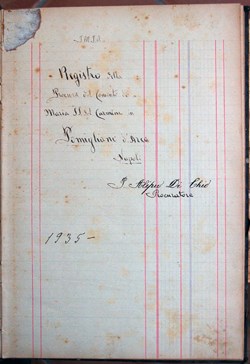 Registro della
Procura del Convento di
Maria SS. del Carmine in
Pomigliano d'Arco
Napoli
P. Alipio De Chio
Procuratore
1935 -